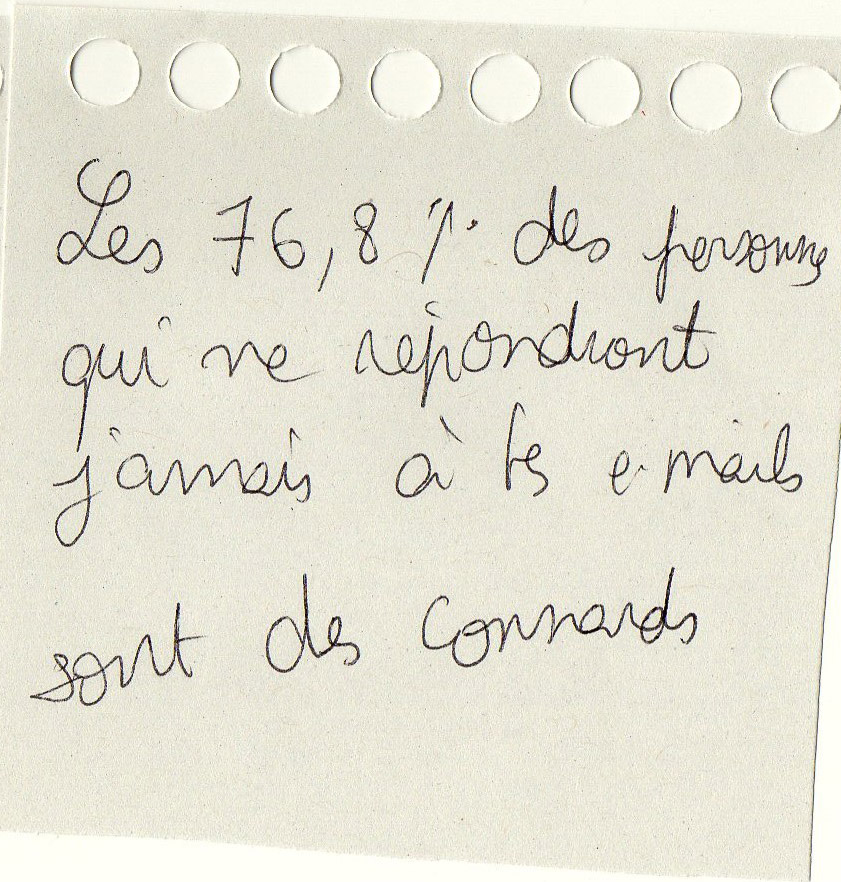 Les 76,8 % des personnes
qui ne répondront
jamais à tes e-mails
sont des connards